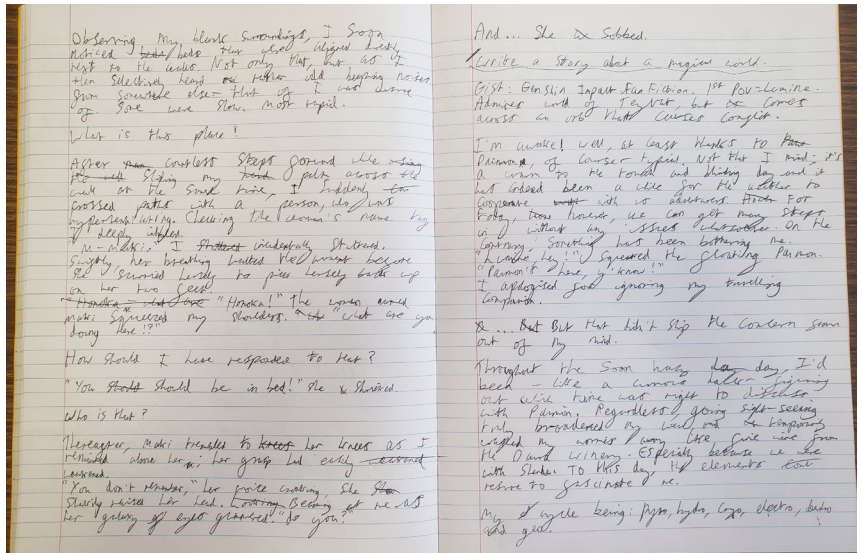 Observing my blank surroundings, I soon
noticed beds that were aligned directly
next to the walls. Not only that, but as I
then selectively heard rather odd beeping noises
from somewhere else - that of I was unaware
of. Some were slow. Most rapid.
What is this place?
After countless steps forward while
sliding my palm across the
wall at the same time, I suddenly
crossed paths with a person, who was
hyperventilating. Checking the woman's name tag
I deeply inhaled.
"M-Maki," I incidentally stuttered.
Slightly, her breathing halted the moment before
she to back up
on her two feet.
"Honoka!" The woman, named
Maki squeezed my shoulders. "What are you
doing here!?"
How should I have responded to that?
"You should be in bed!" She
Who is that?
Thereafter, Maki trembled to her knees as I
remained above her, her grasp had
"You don't remember," her voice croaking, she
slowly raised her head. at me as
her galaxy of eyes glimmered. "Do you?"
And... She sobbed.
Write a story about a magical world.
Gist: Genshin Impact Fan Fiction. 1st POV = Lumine.
Admires world of Teyvat, but comes
across an orb that causes conflict.
I'm awake! Well, at least thanks to
Paimon, of course typical. Not that I mind; it's
a warm to the touch and day and it
has indeed been a while for the weather to
cooperate with us adventurers. For
today, however, we can get many steps
in without any issues whatsoever. On the
contrary, something has been bothering me.
"Lumine, hey!" Squeaked the floating Paimon.
"Paimon's here, y'know!"
I apologised for ignoring my travelling
companion.
... But that didn't slip the concern
out of my mind.
Throughout the soon day, I'd
been - like a - figuring
out which time was right to discuss
with Paimon. Regardless, going sight-seeing
truly broadened my and temporarily
my worries away like wine from
the Dawn Winery. Especially because we were
with To this day, the elements
to fascinate me.
My cycle being: Pyro, hydro, cryo, electro, dendro
and geo.